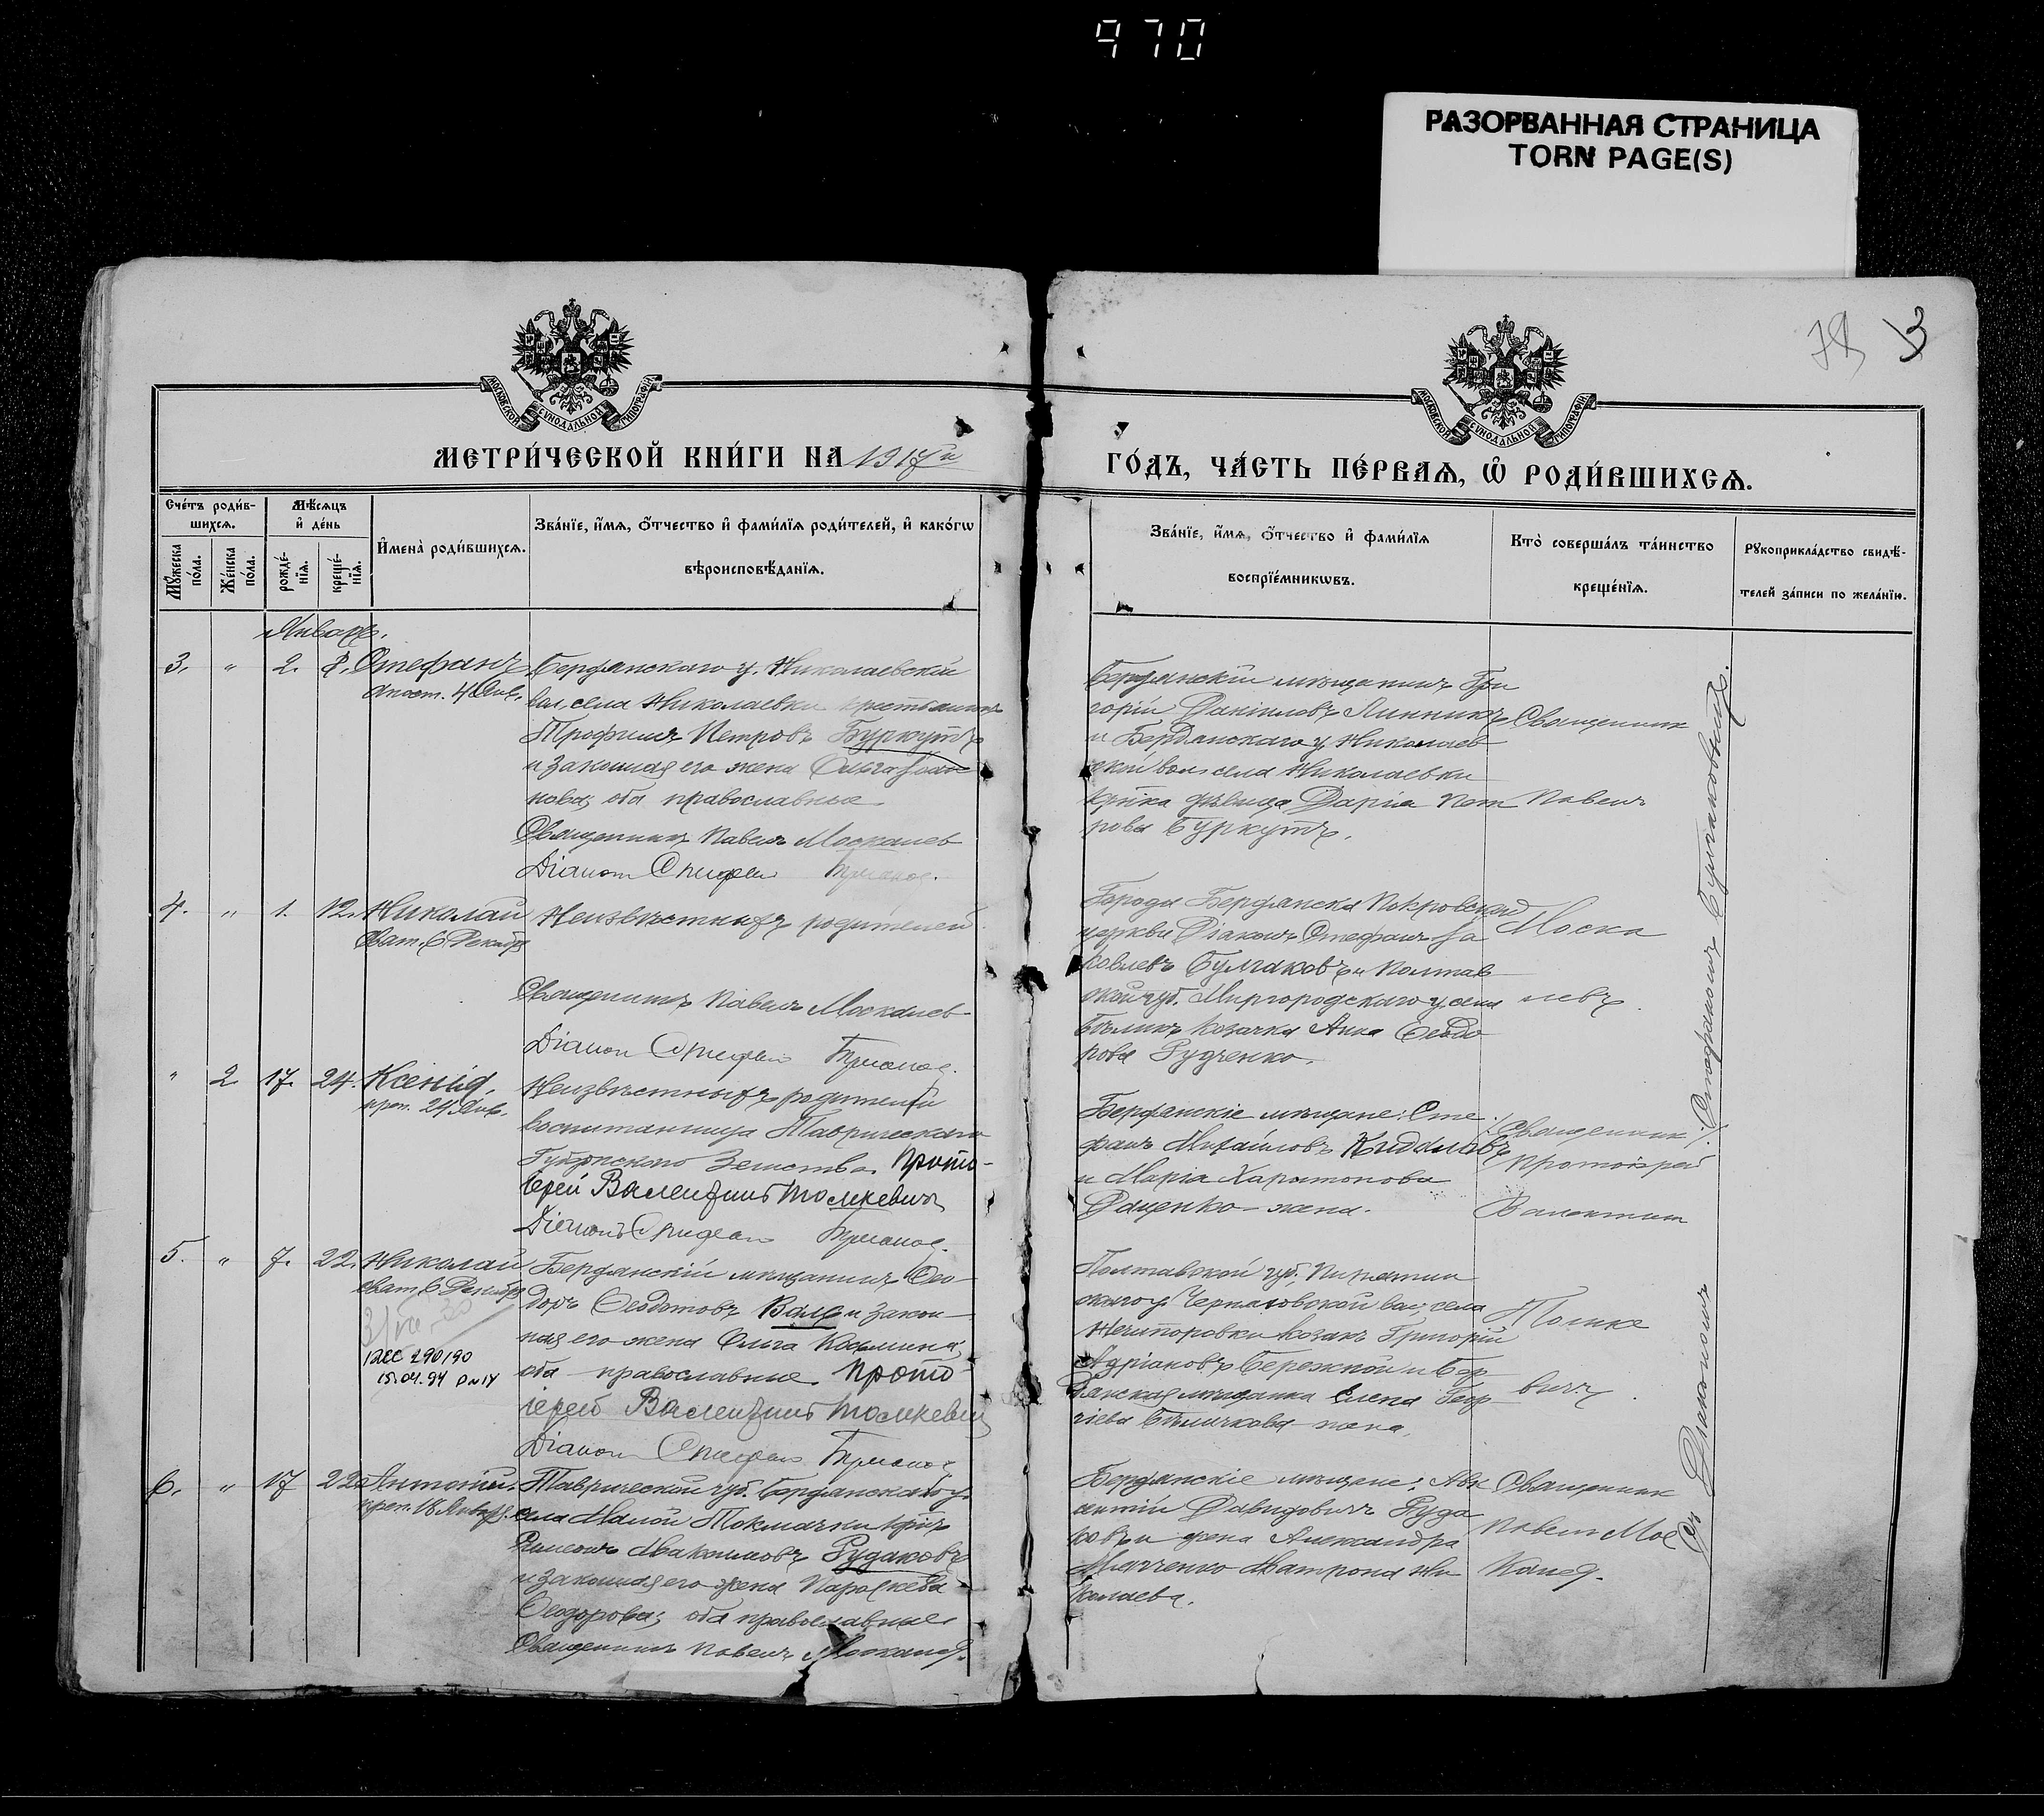 970
РАЗОРВАННАЯ СТРАНИЦА
TORN PAGE(S)
78 3
МОСКОВСКОЙ СѴНОДАЛЬНОЙ ТИПОГРАФІИ
МОСКОВСКОЙ СѴНОДАЛЬНОЙ ТИПОГРАФІИ
МЕТРИ́ЧЕСКОЙ КНИ́ГИ НА 1917й
ГО́ДЪ, ЧА́СТЬ ПЕ́РВАѦ, Ѽ РОДИ́ВШИХСѦ.
Сче́тъ роди́в-
шихся.
Мѣ́сяцъ
и҆ де́нь
Мꙋ́жеска
по́ла.
Же́нска
по́ла.
рожде́-
нїя.
креще́-
нїя.
И҆мена̀ роди́вшихся.
Зва́нїе, и҆́мя, ѻ҆́тчество и҆ фами́лїя роди́телей, и҆ како́гѡ
вѣроисповѣ́данїя.
Зва́нїе, и҆́мя, ѻ҆́тчество и҆ фами́лїя
воспрїе́мникѡвъ.
Кто̀ соверша́лъ та́инство
креще́нїя.
Рꙋкоприкла́дство свидѣ́-
телей за́писи по жела́нїю.
Январь.
3. " 2. 8. Стефанъ
апост. 4 Янв.
Бердянскаго у. Николаевской
вол. села Николаевки крестьянинъ
Трофимъ Петровъ Буркутъ
и законная его жена Ольга Іоан
нова; оба православные
Священникъ Павелъ Москалев
Діакон Спиридон
Бердянскій мѣщанинъ Гри
горій Даніиловъ Линникъ
и Бердянскаго у. Николаев
ской вол. села Николаевки
кр-нка дѣвица Дарія Пет
рова Буркутъ.
Священник
Павелъ
4. " 1. 12. Николай
Свят. 6 Декабря
Неизвѣстныхъ родителей
Священникъ Павелъ Москалев
Діакон Спиридон
Города Бердянска Покровской
церкви Діаконъ Стефанъ Іа
ковлевъ Булгаковъ и Полтав
ской губ. Миргородскаго у. села
козачка Анна Ѳеодо
рова Рудченко.
Моска
левъ.
" 2 17. 24. Ксенія,
преп. 24 Янв.
Неизвѣстныхъ родителей
воспитанница Таврическаго
Губернскаго Земства. Прото-
іерей Валентинъ Толкевичъ
Діаконъ Спиридон
Бердянскіе мѣщане: Сте
фанъ Михайловъ
и Марія Харитонова
Даценко – жена.
Священник
Протоіерей
Валентин
5. " 7. 22. Николай
Свят. 6 Декабря
15.04.94
Бердянскій мѣщанинъ Ѳео-
доръ Ѳеодотовъ и закон-
ная его жена Ольга Косьмина;
оба православные. Прото-
іерей Валентинъ Толкевич
Діакон Спиридон
Полтавской губ. Пирятин
скаго у. вол. села
козакъ Григорій
Адріановъ Бережной и Бер
дянская мѣщанка Елена Геор
гіева жена.
Толке
вичъ.
6. " 17 22. Антоній.
преп. Янв.
Таврической губ. Бердянскаго у.
села Малой Токмачки кр-нъ
Максимовъ Рудаковъ
и законная его жена Параскева
Ѳеодорова; оба православные
Священникъ Павелъ Москалев.
Бердянскіе мѣщане: Авк
сентій Давидовичъ Руда
ковъ и жена Александра
Матрона Ни
колаева.
Священник
Павелъ Мос
калев.
Съ Діакономъ Стефаномъ Булгаковымъ.